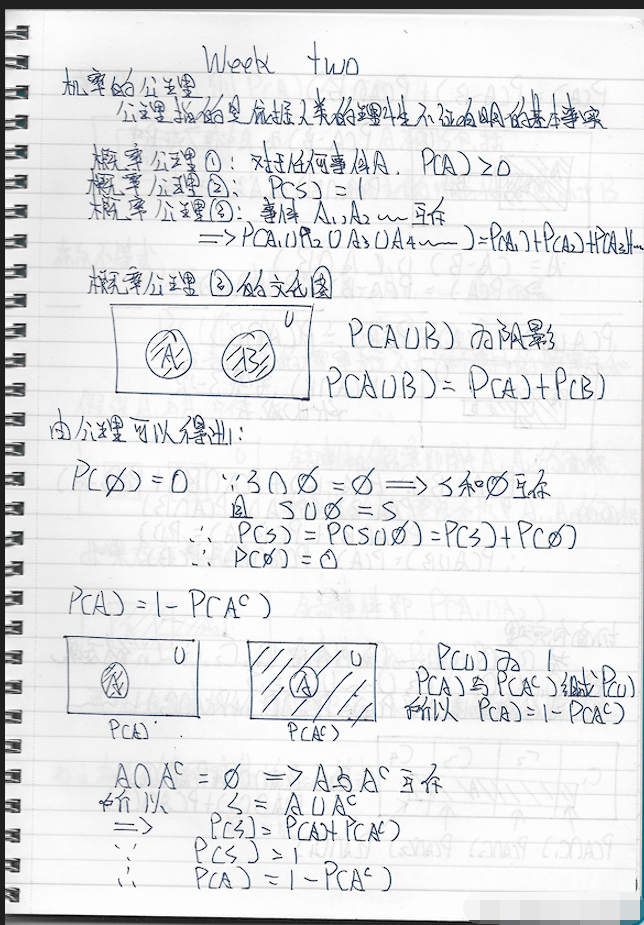 Week two
机率的公理
公理指的是依据人类的理性不证自明的基本事实
概率公理①: 对于任何事件A, P(A) ≥ 0
概率公理②: P(S) = 1
概率公理③: 事件 A₁, A₂ …… 互斥
=> P(A₁∪A₂∪A₃∪A₄……) = P(A₁)+P(A₂)+P(A₃)+…
概率公理③的文氏图
U
A B
P(A∪B) 为阴影
P(A∪B) = P(A) + P(B)
由公理可以得出:
P(∅) = 0 ∵ S∩∅ = ∅ => S和∅互斥
且 S∪∅ = S
∴ P(S) = P(S∪∅) = P(S) + P(∅)
∴ P(∅) = 0
P(A) = 1 - P(Aᶜ)
U
A
P(A)
U
A
P(Aᶜ)
P(U) 为 1
P(A) 与 P(Aᶜ) 组成 P(U)
所以 P(A) = 1 - P(Aᶜ)
A∩Aᶜ = ∅ => A与Aᶜ 互斥
所以 S = A∪Aᶜ
=> P(S) = P(A) + P(Aᶜ)
∵ P(S) = 1
∴ P(A) = 1 - P(Aᶜ)